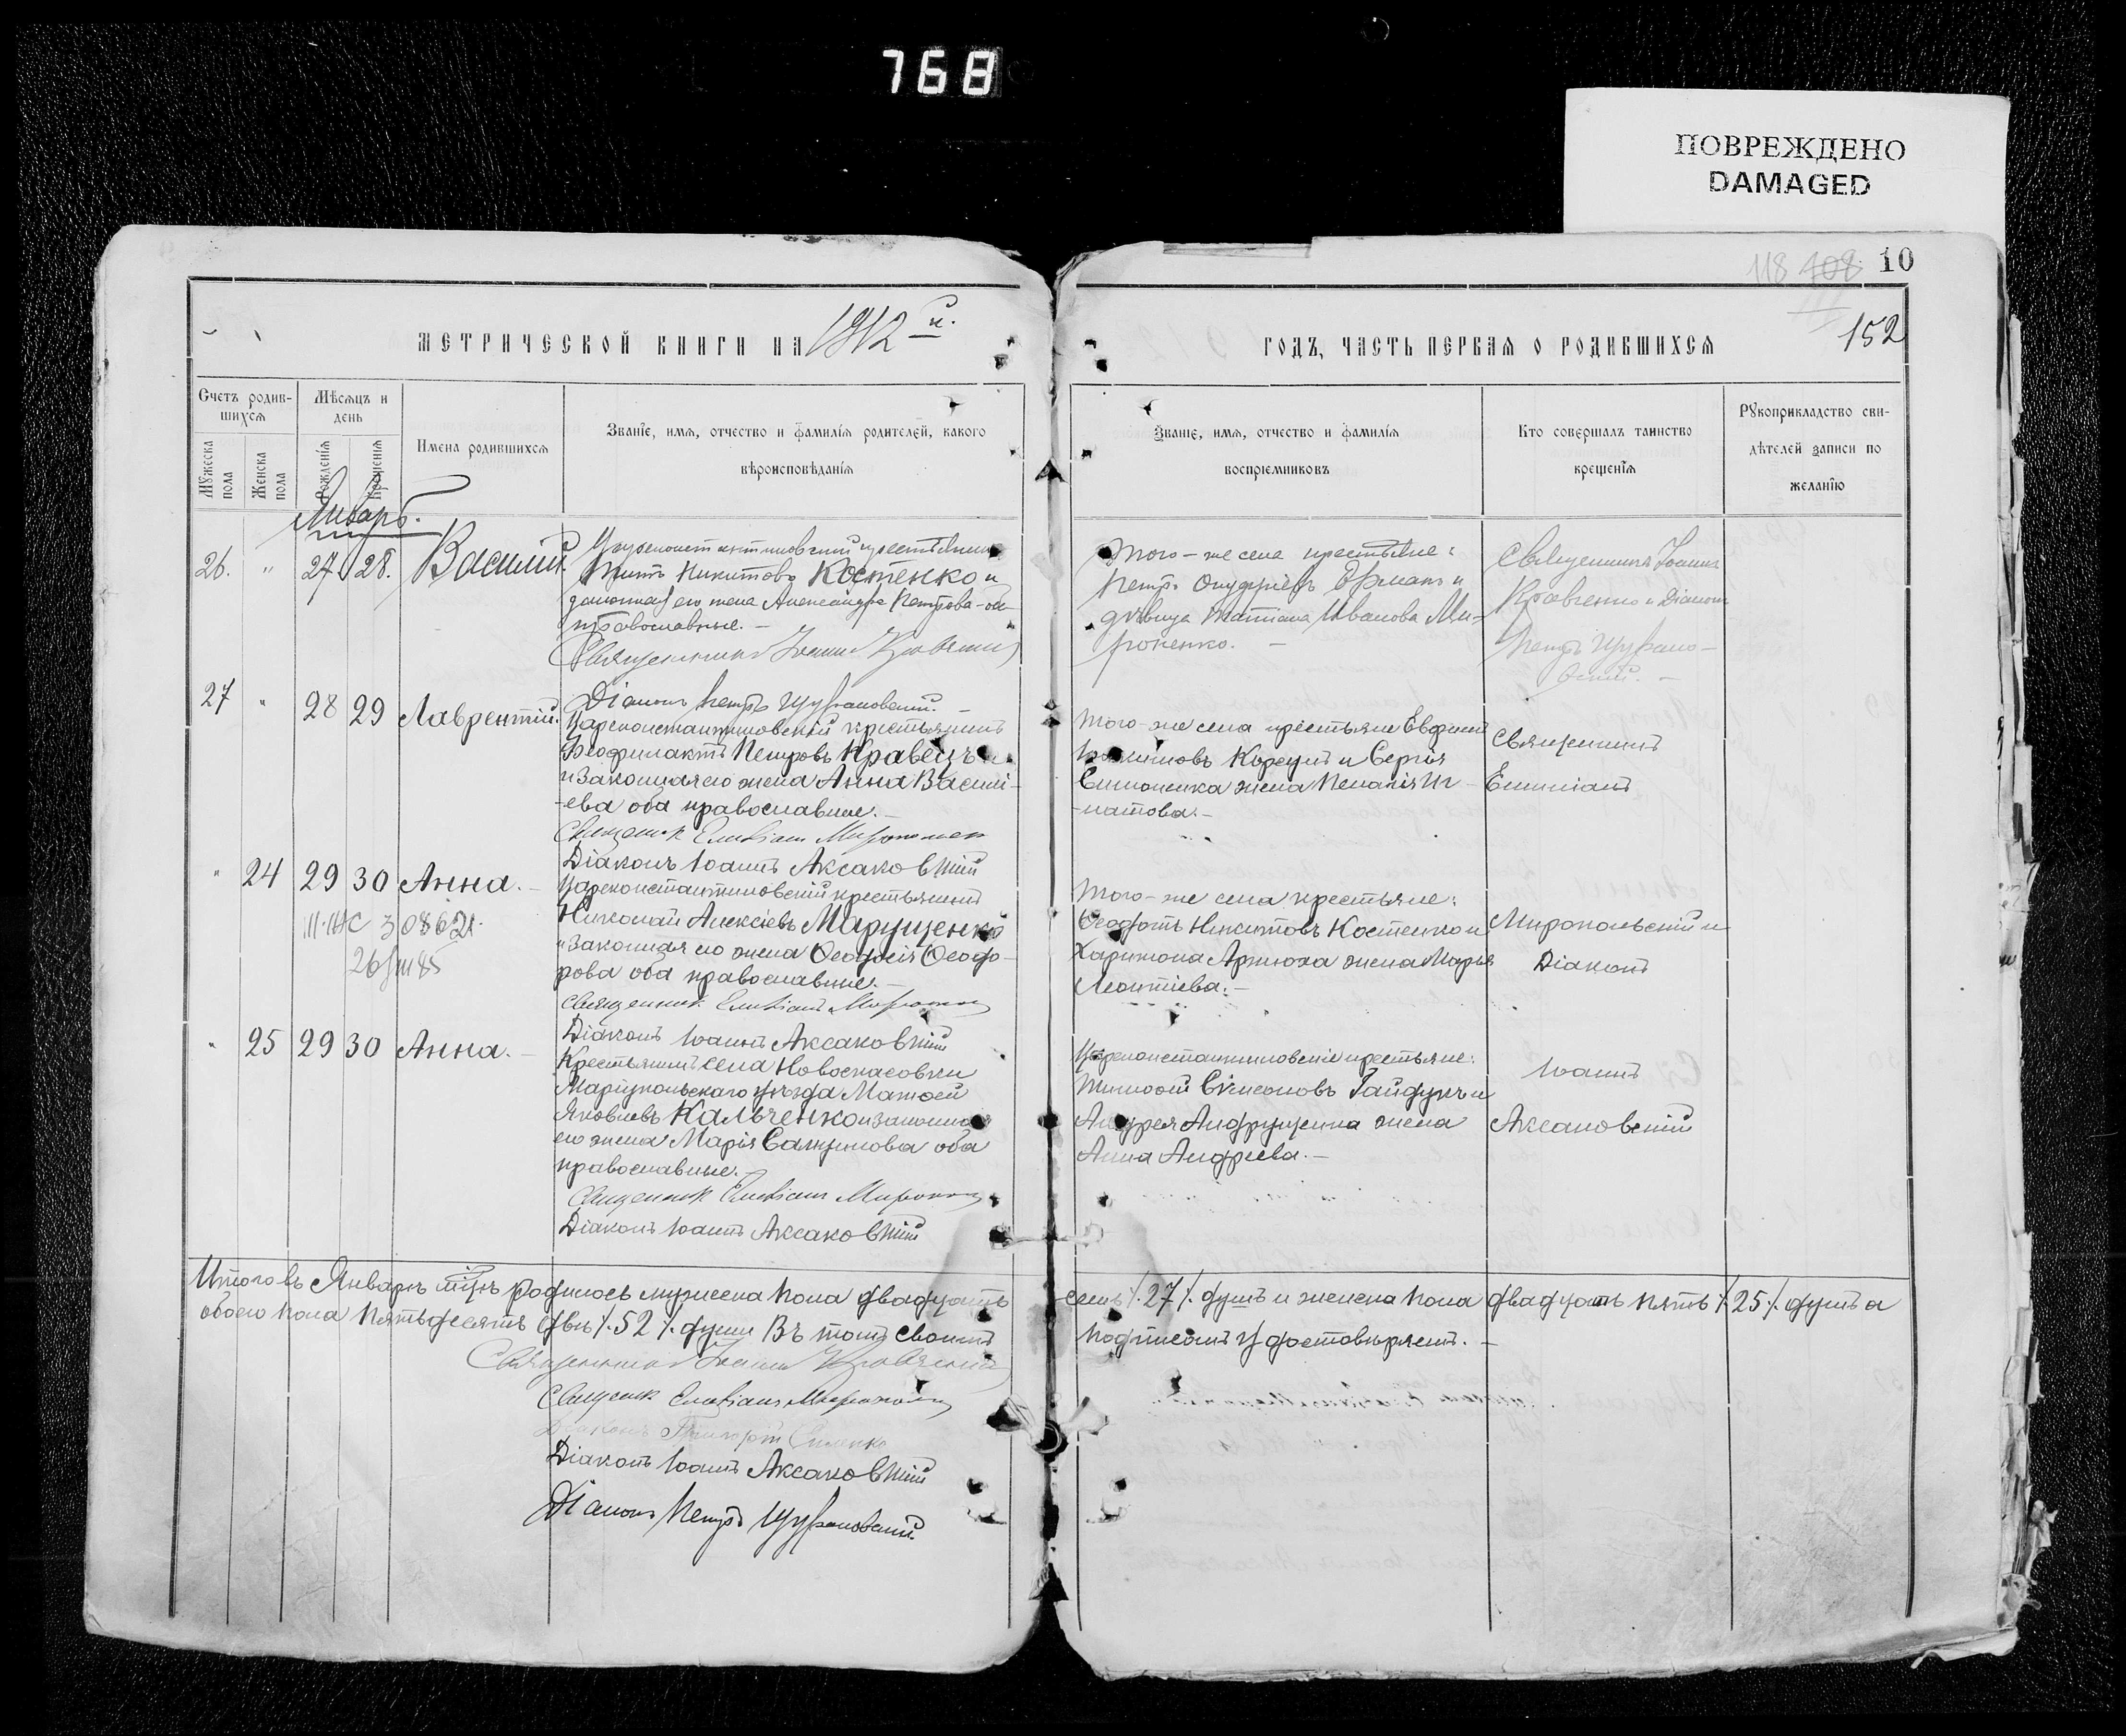 768
ПОВРЕЖДЕНО
DAMAGED
118 408 10
МЕТРИЧЕСКОЙ КНИГИ НА 1912 й.
ГОДЪ, ЧАСТЬ ПЕРВАЯ О РОДИВШИХСЯ
152
Счетъ родив-
шихся
Мужеска пола
Женска пола
Мѣсяцъ и
день
Рожденія
Крещенія
Имена родившихся
Званіе, имя, отчество и фамилія родителей, какого
вѣроисповѣданія
Званіе, имя, отчество и фамилія
воспріемниковъ
Кто совершалъ таинство
крещенія
Рукоприкладство сви-
дѣтелей записи по
желанію
Январь.
26. " 27 28. Василій.
Цареконстантиновскій крестьянинъ
Титъ Никитовъ Костенко и
законная его жена Александра Петрова - оба
православные. -
Священникъ Іоаннъ Кравченко
Діаконъ Петръ
Того-же села крестьяне:
Петръ Онуфріевъ Ермакъ и
дѣвица Татіана Иванова Ми-
роненко. -
Священникъ Іоаннъ
Кравченко и Діаконъ
Петръ
27 " 28 29 Лаврентій.
Цареконстантиновскій крестьянинъ
Ѳеофилактъ Петровъ Кравецъ
и законная его жена Анна Василі-
-ева оба православные. -
Священник Емиліанъ
Діаконъ Іоаннъ Аксаковскій
Того-же села крестьяне Евфимій
Корсунъ и Сергія
Симоненка жена Пелагія Иг-
-натова. -
Священникъ
Емиліанъ
" 24 29 30 Анна. -
III-ЖС 308621.
26/III 85
Цареконстантиновскій крестьянинъ
Николай Алексѣевъ Марущенко
и законная его жена Ѳеодосія Ѳеодо-
рова оба православные. -
Священник Емиліанъ
Діаконъ Іоаннъ Аксаковскій
Того-же села крестьяне:
Ѳеодотъ Никитовъ Костенко и
Харитона Артюха жена Марія
Леонтіева. -
Миропольскій и
Діаконъ
" 25 29 30 Анна. -
Крестьянинъ села Новоспасовки
Маріупольскаго уѣзда Матѳей
Яковлевъ Кальченко и законная
его жена Марія оба
православные. -
Священник Емиліанъ
Діаконъ Іоаннъ Аксаковскій
Цареконстантиновскіе крестьяне:
Тимоѳей Симеоновъ Гайдукъ и
Андрея Андрущенка жена
Анна Андреева. -
Іоаннъ
Аксаковскій
Итого въ Январѣ мѣсяцѣ родилось мужеска пола двадцать семь /.27/. душъ и женска пола двадцать пять /.25/. душъ а
обоего пола пятьдесятъ двѣ /.52/. души Въ томъ своимъ подписомъ удостовѣряемъ. -
Священникъ Іоаннъ Кравченко
Священник Емиліанъ
Діаконъ Григорій
Діаконъ Іоаннъ Аксаковскій
Діаконъ Петръ